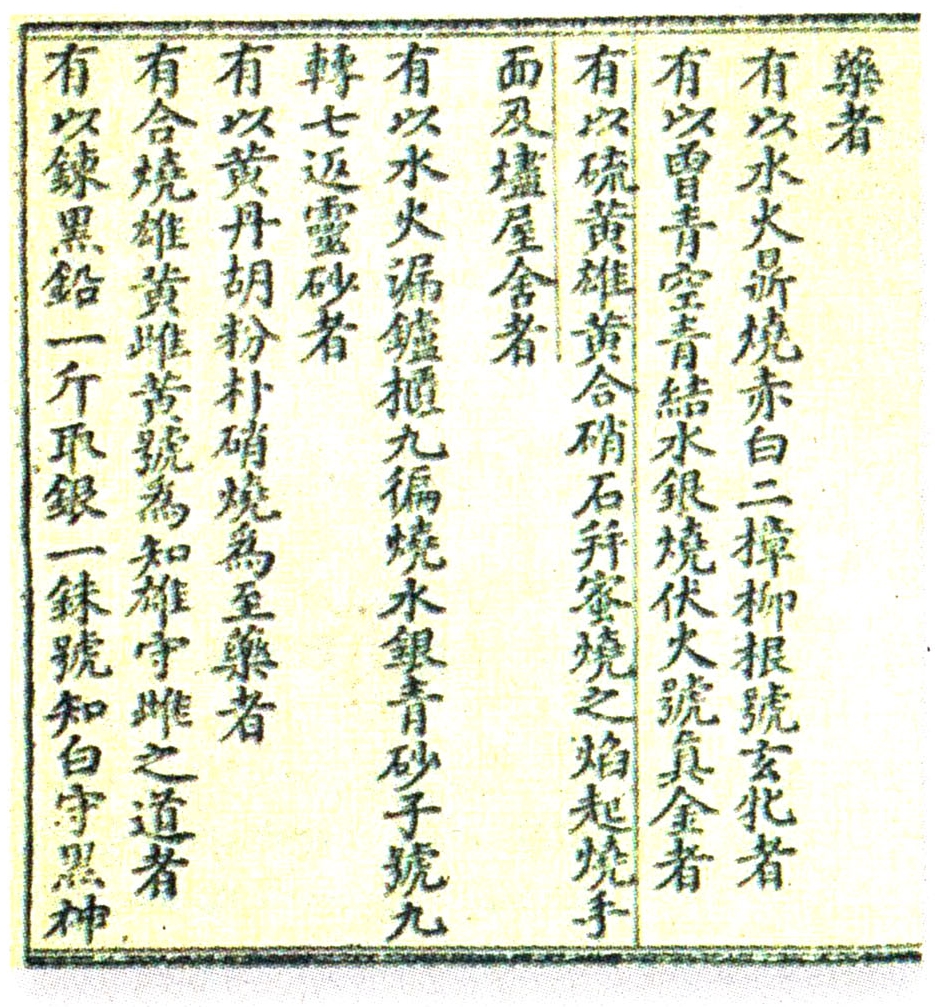 藥者
有以水火鼎燒赤白二樟柳根號玄牝者
有以曾青空青結水銀燒伏火號真金者
有以硫黃雄黃合硝石并蜜燒之焰起燒手
面及燼屋舍者
有以水火漏鑪櫃九徧燒水銀青砂子號九
轉七返靈砂者
有以黃丹胡粉朴硝燒為至藥者
有合燒雄黃雌黃號為知雄守雌之道者
有以鍊黑鉛一斤取銀一銖號知白守黑神